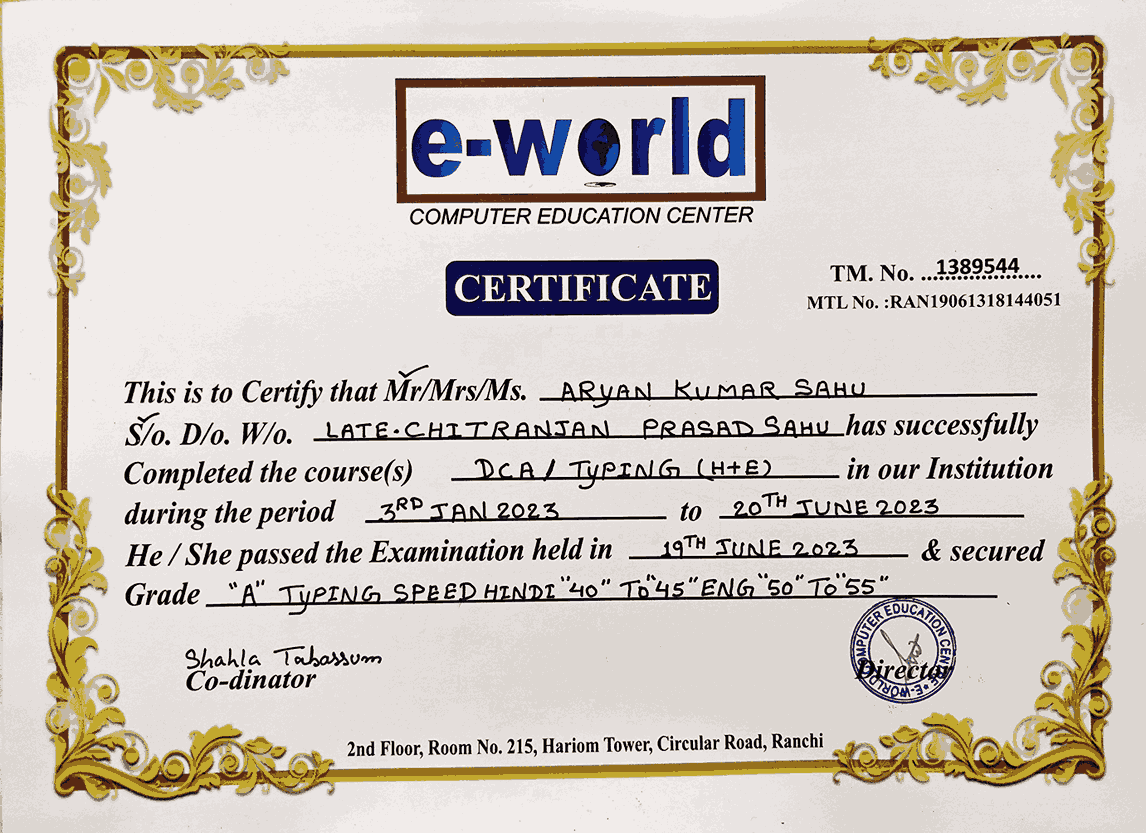 e-world
COMPUTER EDUCATION CENTER
CERTIFICATE
TM. No. ...1389544...
MTL No. :RAN19061318144051
This is to Certify that Mr/Mrs/Ms. ARYAN KUMAR SAHU
S/o. D/o. W/o. LATE. CHITRANJAN PRASAD SAHU has successfully
Completed the course(s) DCA/ TYPING (H+E) in our Institution
during the period 3RD JAN 2023 to 20TH JUNE 2023
He / She passed the Examination held in 19TH JUNE 2023 & secured
Grade "A" TYPING SPEED HINDI "40" To "45" ENG "50" To "55"
Shahla Tabassum
Co-dinator
E-WORLD COMPUTER EDUCATION CENTRE
Director
2nd Floor, Room No. 215, Hariom Tower, Circular Road, Ranchi